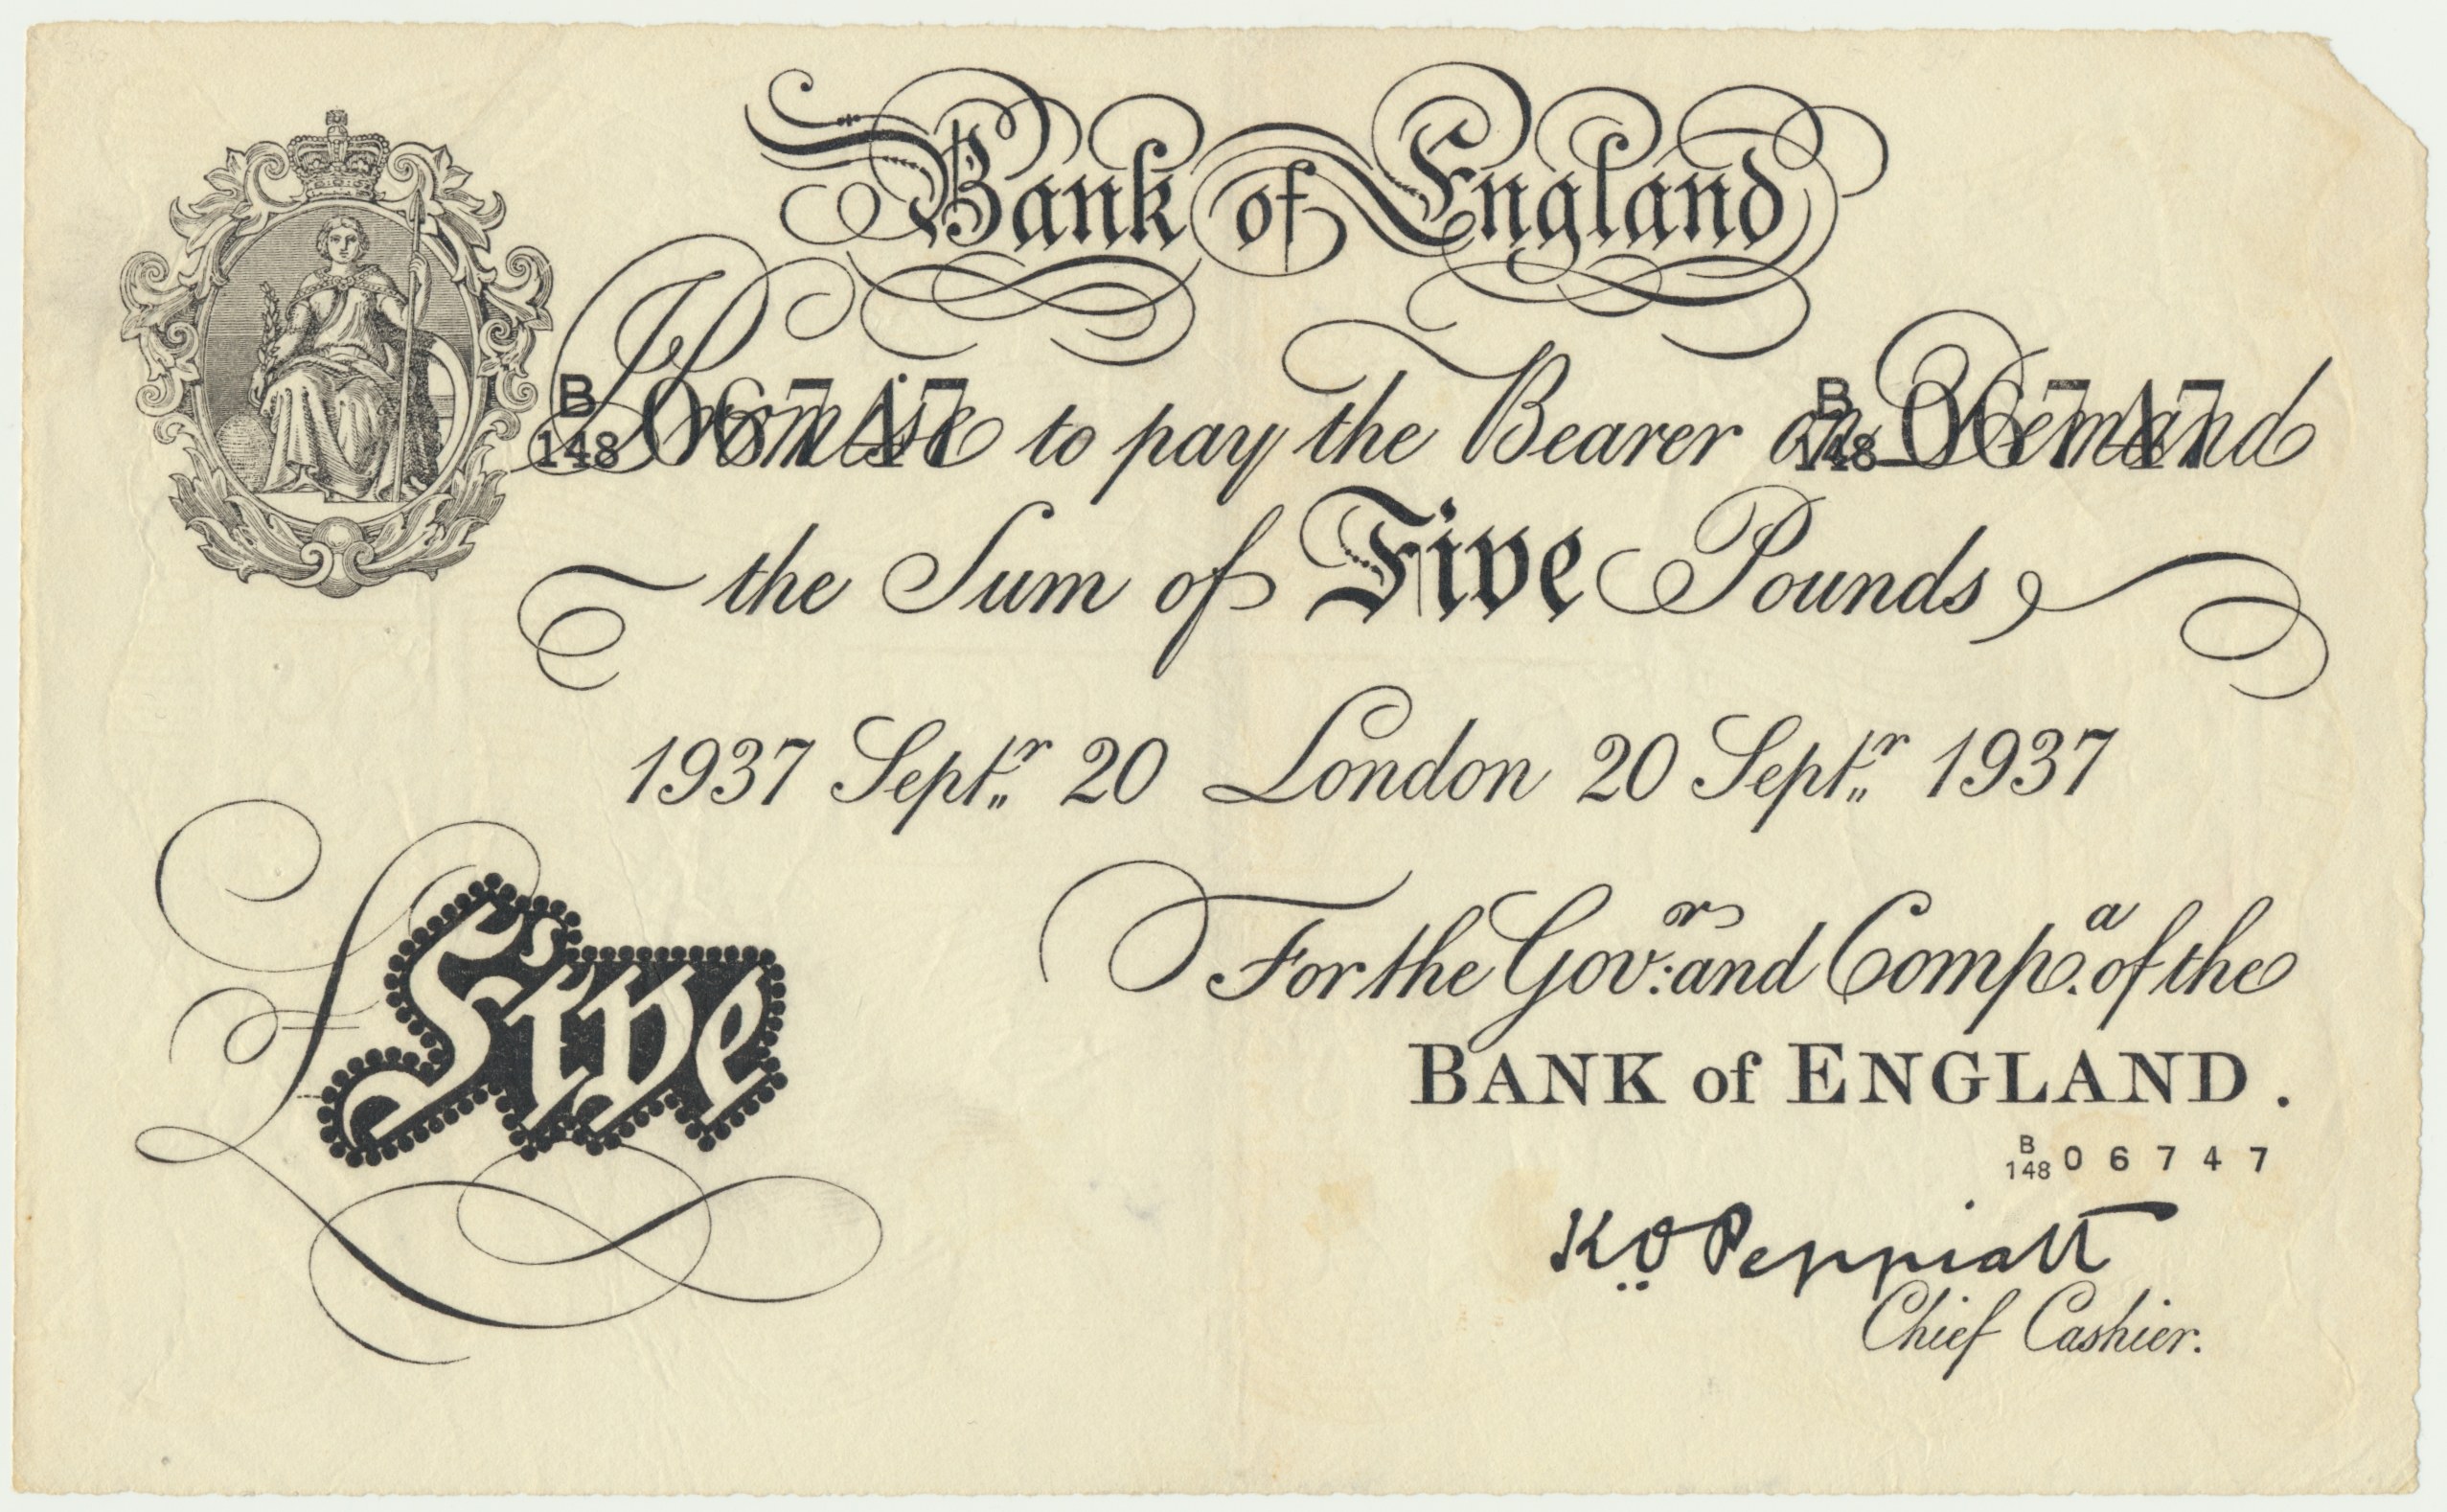 Bank of England
B 148 06747 B 148 06747
I Promise to pay the Bearer on Demand
the Sum of Five Pounds
1937 Septr 20 London 20 Septr 1937
For the Govr: and Compa. of the
BANK of ENGLAND.
£Five
B 148 06747
K.O. Peppiatt
Chief Cashier.